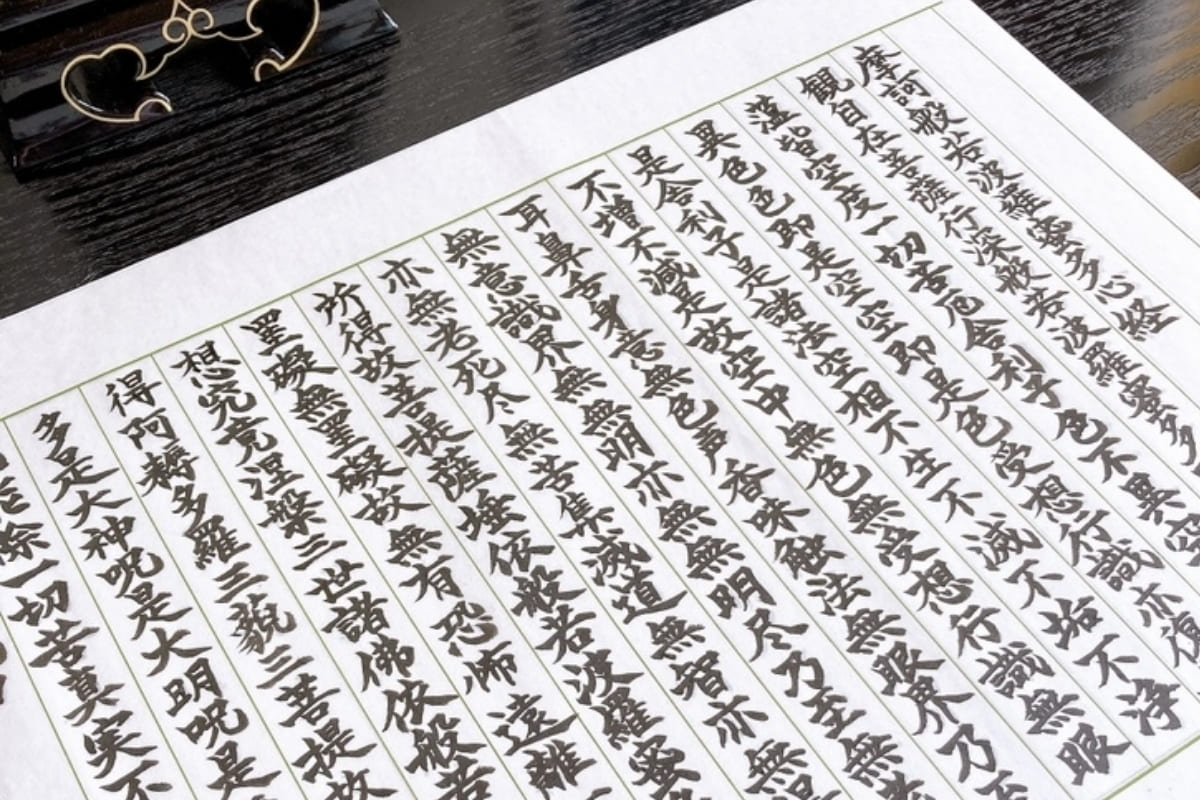 摩訶般若波羅蜜多心経
観自在菩薩行深般若波羅蜜多
蘊皆空度一切苦厄舎利子色不異空
異色色即是空空即是色受想行識亦復
是舎利子是諸法空相不生不滅不垢不浄
不増不減是故空中無色無受想行識無眼
耳鼻舌身意無色声香味触法無眼界乃至
無意識界無無明亦無無明尽乃至無
亦無老死尽無苦集滅道無智亦無得
所得故菩提薩埵依般若波羅蜜
罣礙無罣礙故無有恐怖遠離
想究竟涅槃三世諸佛依般若
得阿耨多羅三藐三菩提故
多是大神呪是大明呪是
能除一切苦真実不